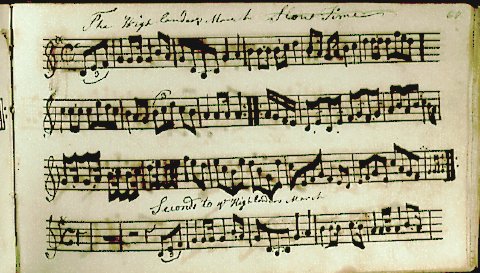 The Highlanders March Slow Time 60
3
Seconds to ye Highlanders March
3